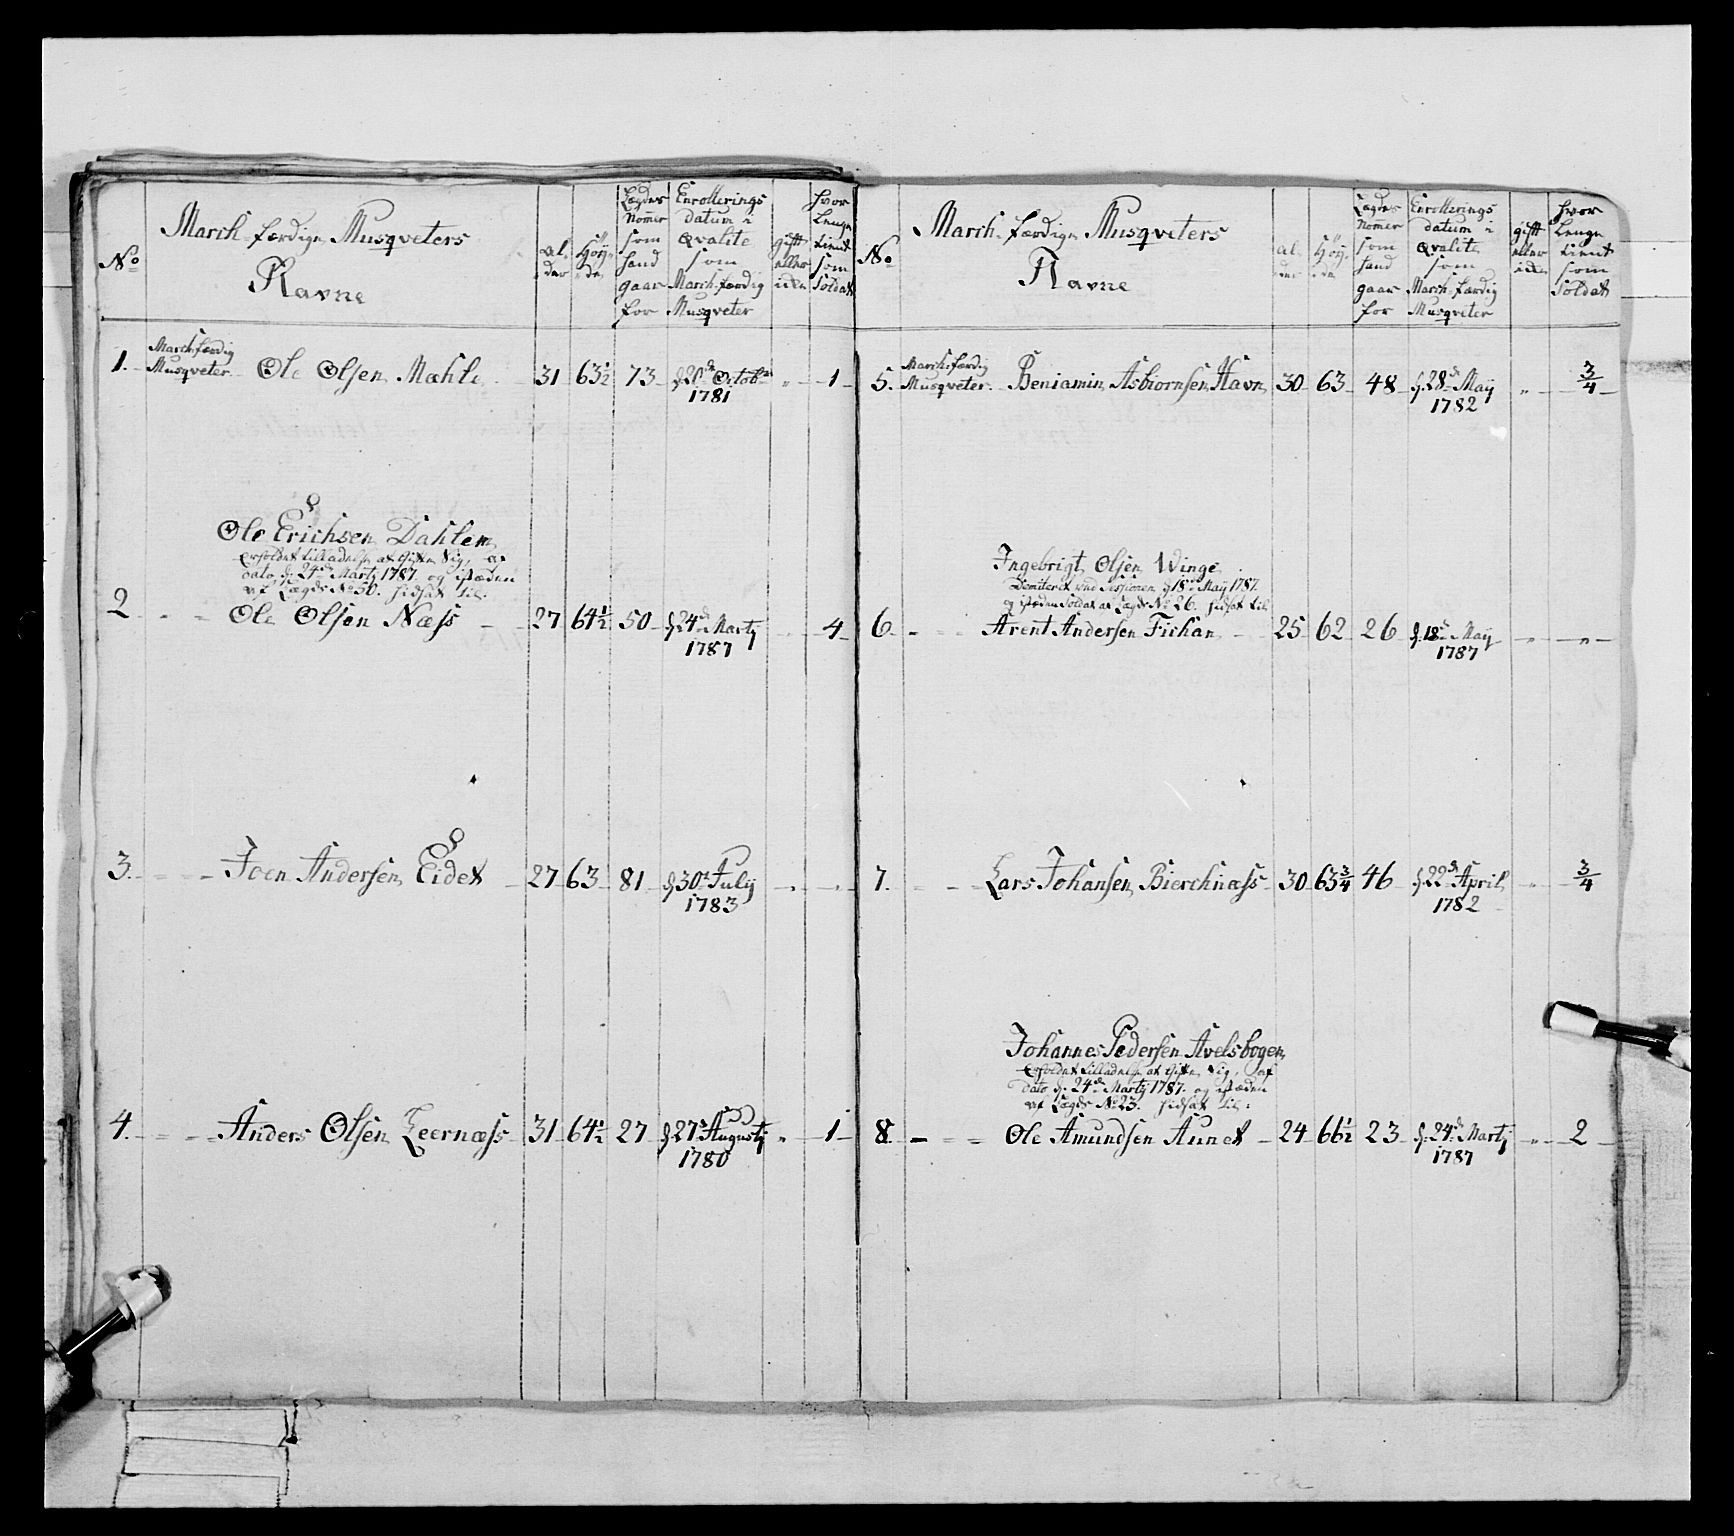 No
March-færdige Musqveters
Navne
Al-
der
Höy-
de
Lægdes
Nomer
som
hand
gaar
for
Enrollerings
datum i
Qvalite
som
March-færdig
Musqveter
gift
eller
iden
hvor
Lenge
tient
som
Soldat
1. March-færdig
Musqveter Ole Olsen Mæhle 31 63½ 73 d 20de Octobr 1
1781
Ole Erichsen Dahlem
Erholdet tilladelse at gifte Sig, af
dato d. 24de Martj 1787. og isteden
af Lægds No 50. hidsat til:
2 Ole Olsen Næss 27 64½ 50 d 24de Martj " 4
1787
3. Joen Andersen Eidet 27 63 81 d 30te Julij " "
1783
4. Anders Olsen Leernæss 31 64½ 27 d 27de Augustj " 1
1780
No
March-færdige Musqveters
Navne
Al-
der
Höy-
de
Lægdes
Nomer
som
hand
gaar
for
Enrollerings
datum i
Qvalite
som
March-færdig
Musqveter
gift
eller
iden
hvor
Lenge
tient
som
Soldat
5. March-færdig
Musqveter Beniamin Asbiornsen Havn 30 63 48 d 28de Maij " 3/4
1782
Ingebrigt Olsen Winge
Dimiteret ved Sessionen d 18de Maij 1787.
og isteden Soldat af Lægds No 26. hidsat til
6 Arent Andersen Fichan 25 62 26 d. 18de Maij " "
1787
7. Lars Johansen Bierchnæss 30 63¾ 46 d 22de April " 3/4
1782
Johannes Pedersen Avelsbogen
Erholdet tilladelse at gifte sig, af
Dato d. 24de Martj 1787. og isteden
af Lægds No 23. hidsat til:
8. Ole Amundsen Aunet 24 66½ 23 d. 24de Martj " 2
1787